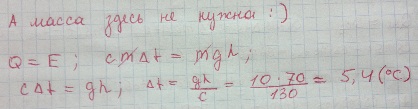 А масса здесь не нужна :)
Q = E ; cmΔt = mgh ;
cΔt = gh ; Δt = gh/c = 10·70/130 = 5,4 (°C)